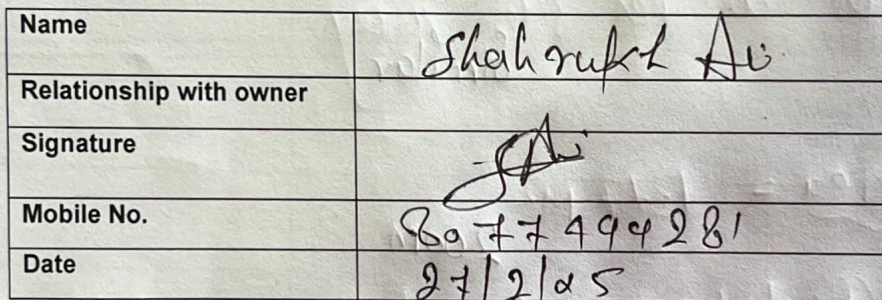 Name Shahrukh Ali
Relationship with owner
Signature
Mobile No.
Date 27/2/25